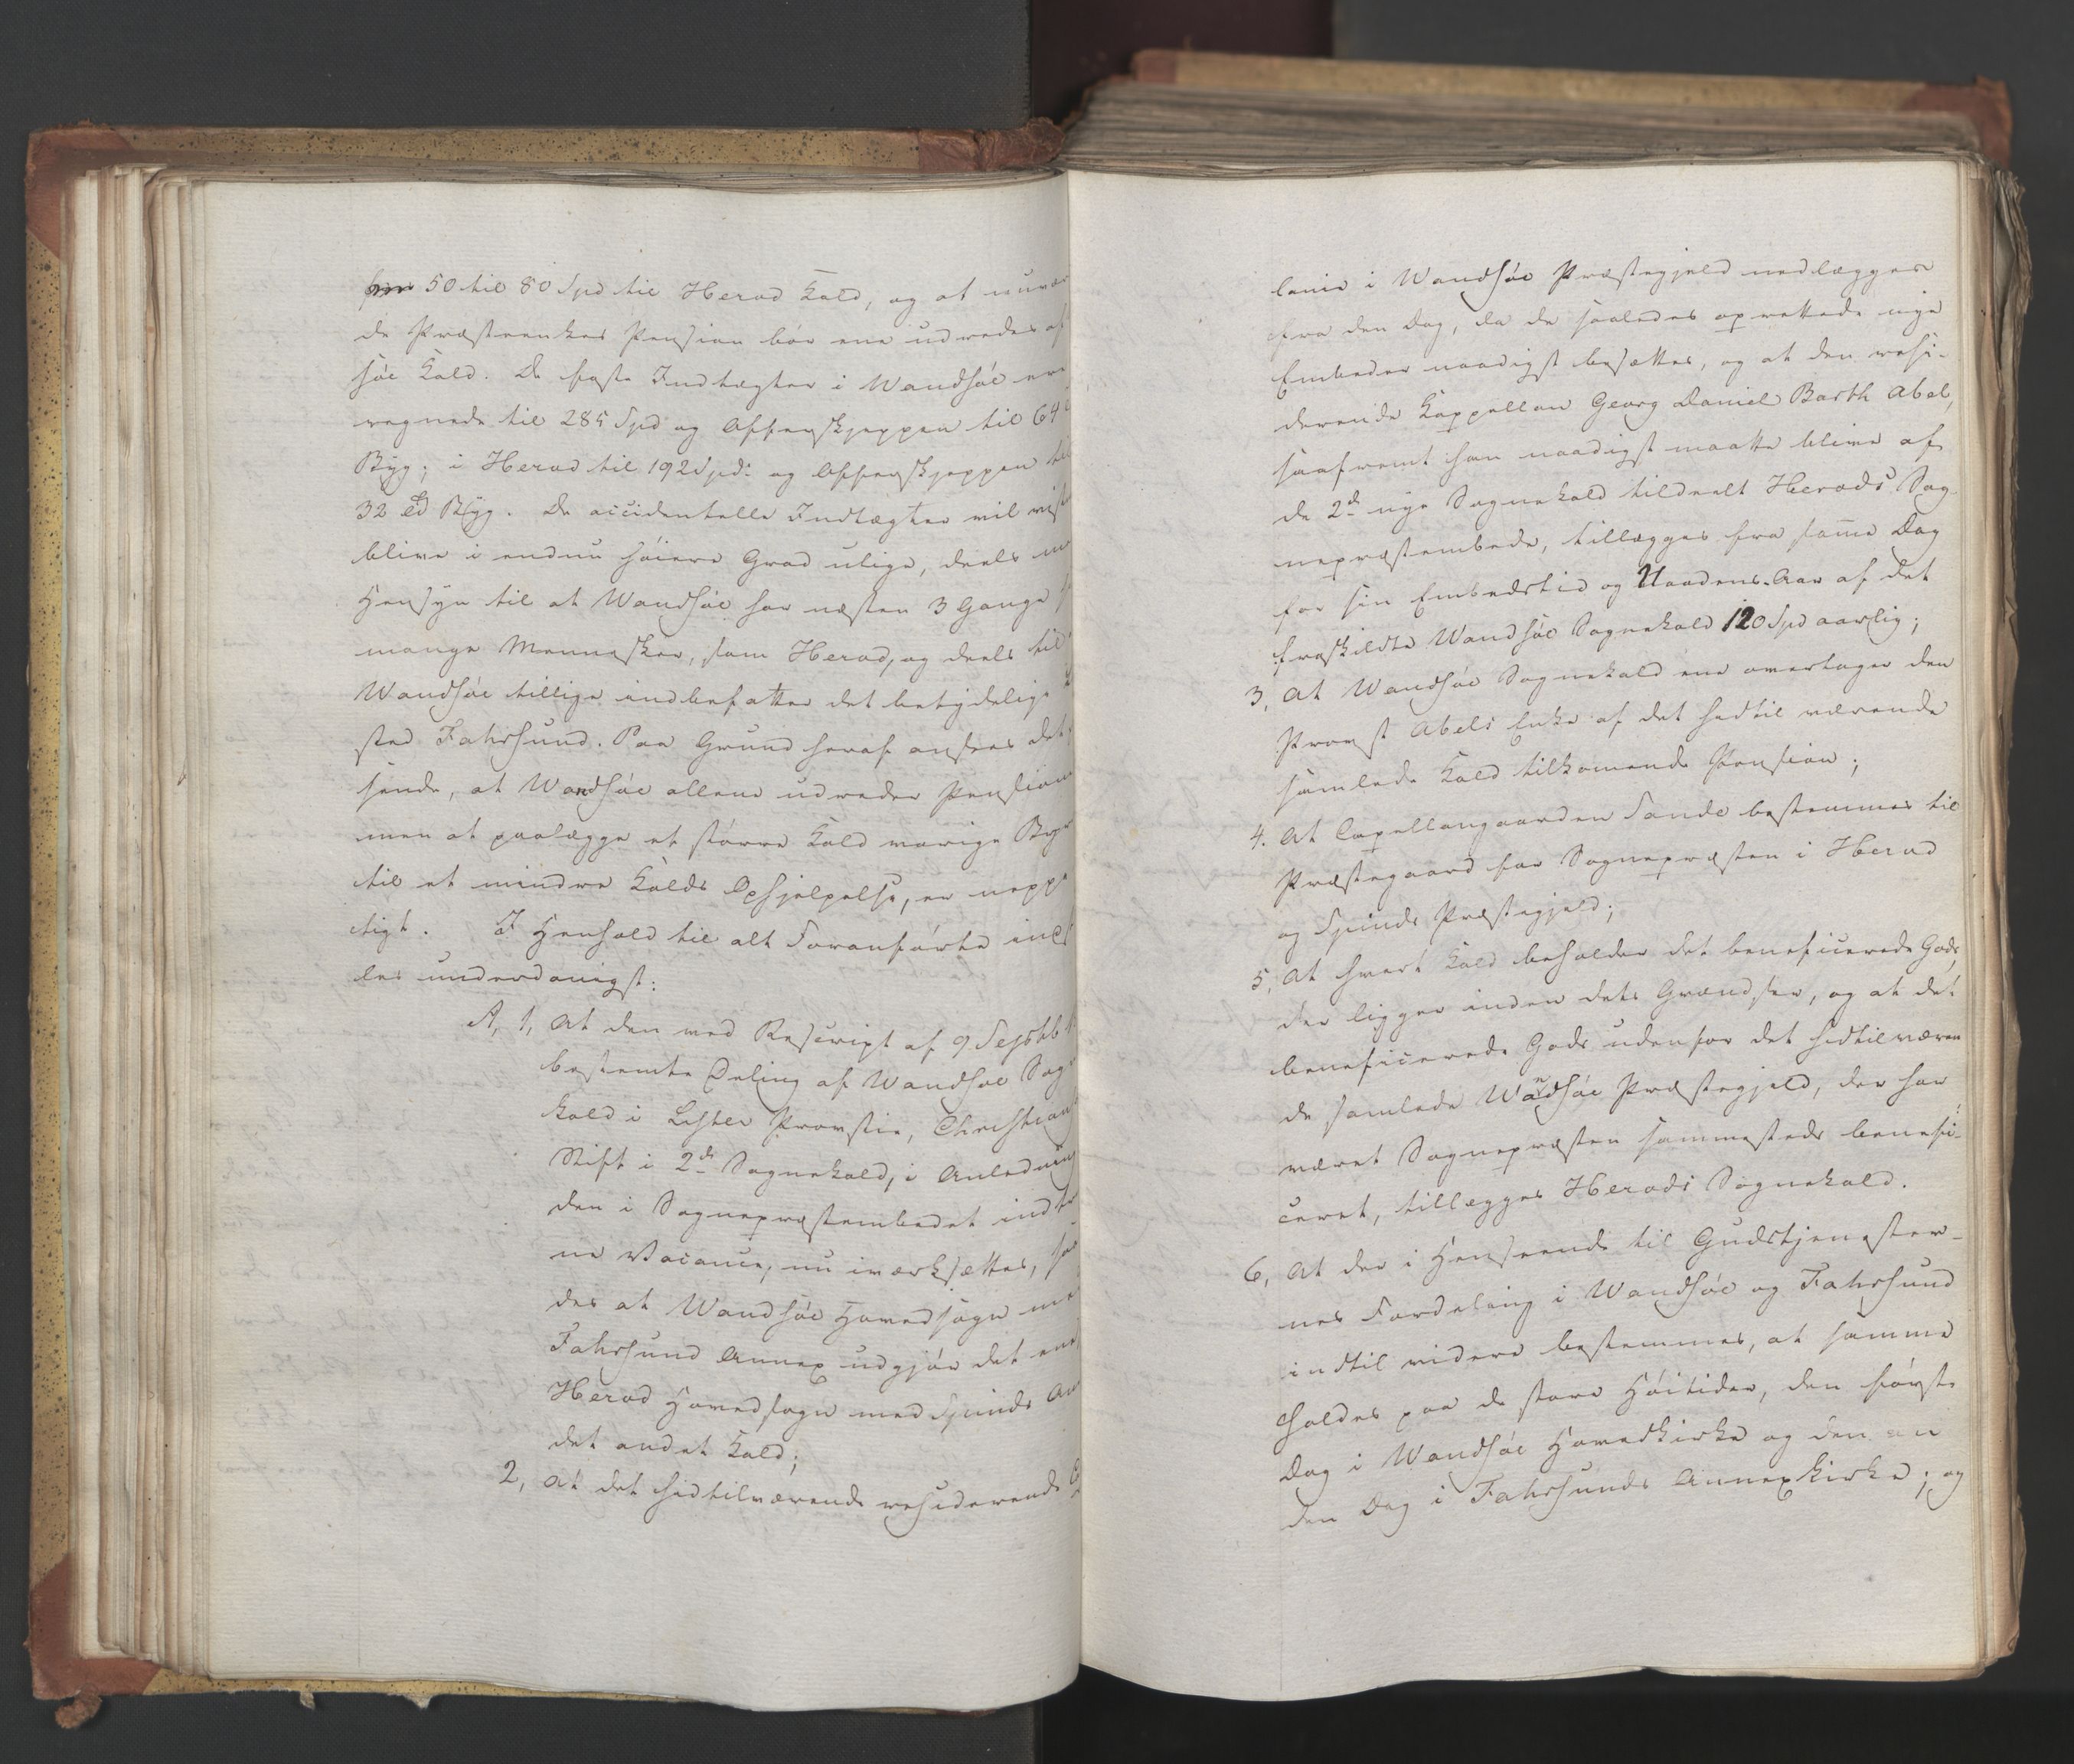 50 til 80 Spd til Herad Kald, og at nuvæ
de Præsteenkes Pension bør ene udredes af
søe Kald. De faste Indtægter i Wandsøe ere
regnede til 285 Spd og Offerskjeppen til 64
Byg; i Herad til 192 Spd: og Offerskjeppen til
32 Byg. De accidentelle Indtægter vil vist
blive i endnu høiere Grad ulige, deels m
Hensyn til at Wandsøe har næsten 3 Gange s
mange Mennesker, som Herad, og deels til
Wandsøe tillige indbefatter det betydelige
sted Fahrsund. Paa Grund heraf ansees det
sende, at Wandsøe allene udreder Pension
men at paalægge et større Kald varige Byr
til et mindre Kalds Ophjelpelse, er neppe
tigt. I Henhold til alt Foranførte inds
les underdanigst:
A, 1, At den ved Rescript af 9 Septbb
bestemte Deling af Wandsøe Sog
kald i Lister Provstie, Christians
Stift i 2de Sognekald, i Anledning
den i Sognepræstembedet indtr
ne Vacance, nu iværksættes, saa
des at Wandsøe Hovedsogn me
Fahrsund Annex udgjør det ene
Herad Hovedsogn med Spinds An
det andet Kald;
2, At det hidtilværende residerende C
lanie i Wandsøe Præstegjeld nedlægges
fra den Dag, da de saaledes oprettede nye
Embeder naadigst besættes, og at den resi-
derende Kappellan Georg Daniel Barth Abel,
saafremt han naadigst maatte blive af
de 2de nye Sognekald tildeelt Herads Sog
nepræstembede, tillægges fra samme Dag
for sin Embedstid og Naadens-Aar af det
fraskildte Wandsøe Sognekald 120 Spd aarlig;
3, At Wandsøe Sognekald ene overtager den
Provst Abels Enke af det hidtil værende
samlede Kald tilkomende Pension;
4. At Capellangaarden Sande bestemmes til
Præstegaard for Sognepræsten i Herad
og Spinds Præstegjeld;
5, At hvert Kald beholder det beneficerede Gods,
der ligger inden dets Grændser, og at det
beneficerede Gods udenfor det hidtilværen
de samlede Wandsøe Præstegjeld, der har
været Sognepræsten sammesteds benefi-
ceret, tillægges Herads Sognekald.
6, At der i Henseende til Gudstjenester-
nes Fordeling i Wandsøe og Fahrsund
indtil videre bestemmes, at samme
holdes paa de store Høitider, den første
Dag i Wandsøe Hovedkirke og den an
den Dag i Fahrsunds Annexkirke; og